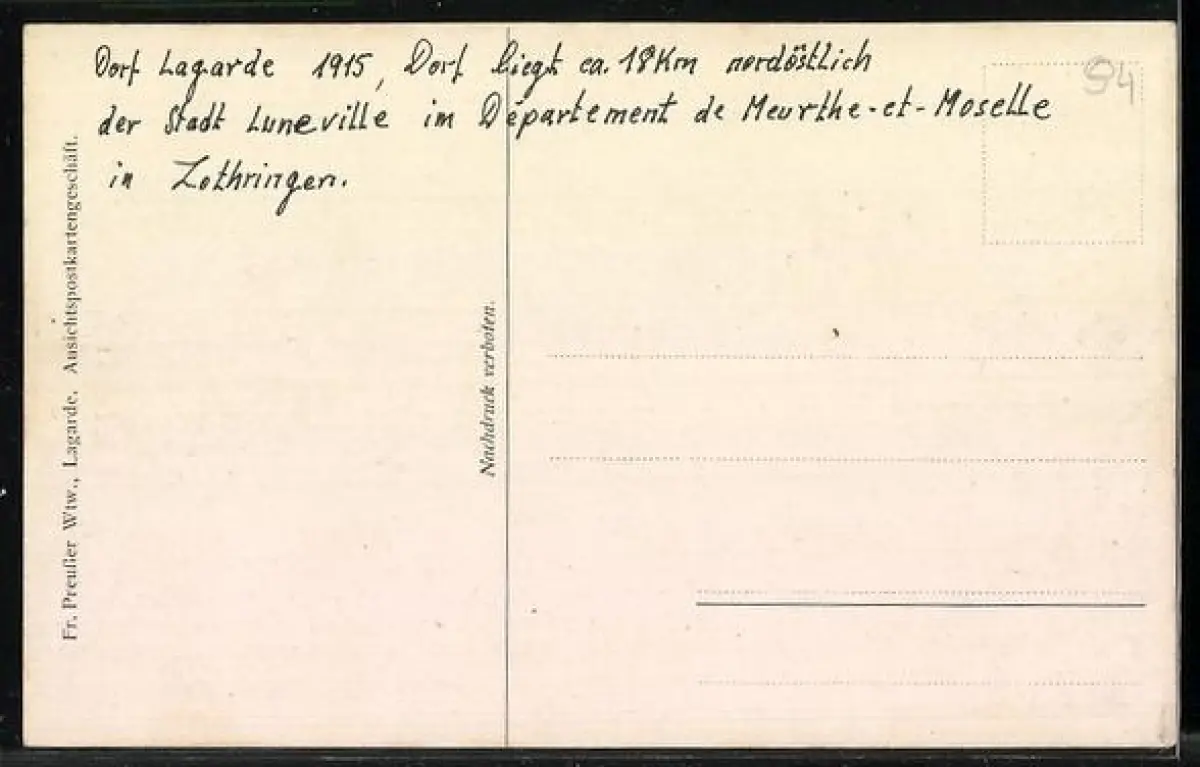 Dorf Lagarde 1915, Dorf liegt ca. 18Km nordöstlich
der Stadt Luneville im Département de Meurthe-et-Moselle
in Lothringen.
94
Fr. Preußer Wtw., Lagarde. Ansichtspostkartengeschäft.
Nachdruck verboten.